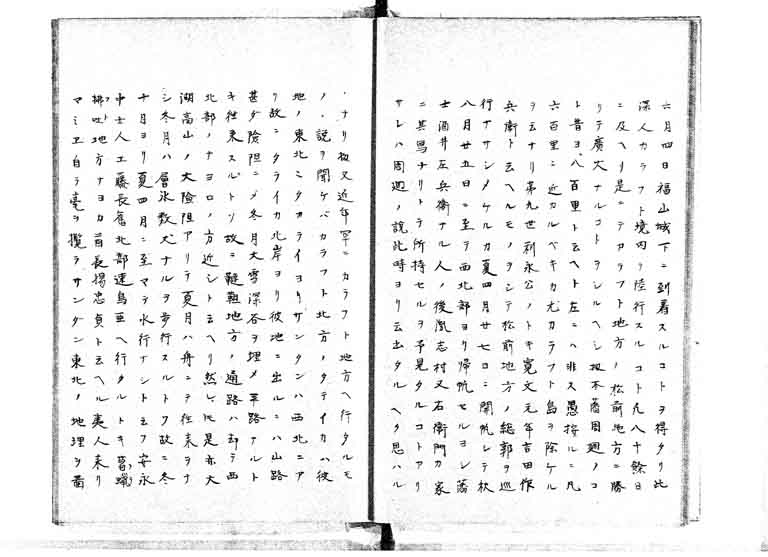 六月四日福山城下ニ到着スルコトヲ得タリ此
深人カラフト境内ヲ陸行スルコト凡八十餘日
ニ及ヘリ是ニテカラフト地方ノ松前地方ニ勝
リテ廣大ナルコトヲシルヘシ扨本蕃周廻ノコ
ト昔ヨハ百里ト云ヘト左ニハ非ス愚按ルニ凡
六百里ニ近カルベキカ尤カラフト島ヲ除ケル
ヲ云ナリ第九世利永公ノトキ寛文元年吉田作
兵衛ト云ヘルモノヲシテ松前地方ノ総郭ヲ巡
行ナサシメケルカ夏四月廿七日ニ開帆シテ秋
八月廿五日ニ至テ西北部ヨリ帰帆セルヨシ藩
士酒井左兵衛ナル人ノ後胤志村又右衛門カ家
ニ其寫ナリトテ所持セルヲ予見タルコトアリ
サレハ周廻ノ説此時ヨリ云出タルヘク思ハル
ナリ扨又近年罕ニカラフト地方ヘ行タルモ
ノノ説ヲ聞ケバカラフト北方ノタライカハ彼
地ノ東北ニタカライヨリサンタンハ西北ニア
リ故ニタライカ北岸ヨリ彼地ニ出ルニハ山路
甚タ險阻ニメ冬月大雪深谷ヲ埋メ平路ナルト
キ往来スルトソ故ニ韃靼地方ノ通路ハ却テ西
北部ノナヨロノ方近シト云ヘリ然レ𪜈是亦大
湖高山ノ大險阻アリテ夏月ハ舟ニテ往来ヲナ
シ冬月ハ層氷数丈ナルヲ歩行スルトソ故ニ冬
十月ヨリ夏四月ニ至マテ氷行ナシト云フ安永
中士人工藤長舊北部速鳥亜ヘ行タルトキ
拂吐地方ナヨカ酋長揚忠貞ト云ヘル夷人来リ
マミヱ自ラ毫ヲ攬テサンダン東北ノ地理ヲ